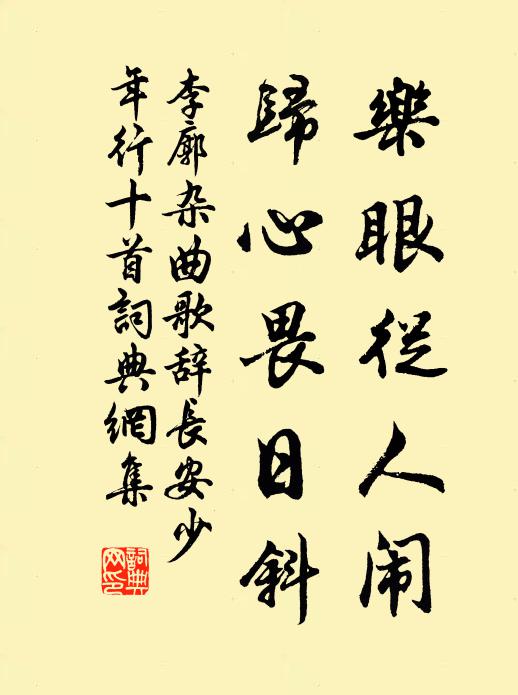 樂眼從人闹
歸心畏日斜
李廓杂曲歌辞長安少
年行十首詞典網集
詞典
网印